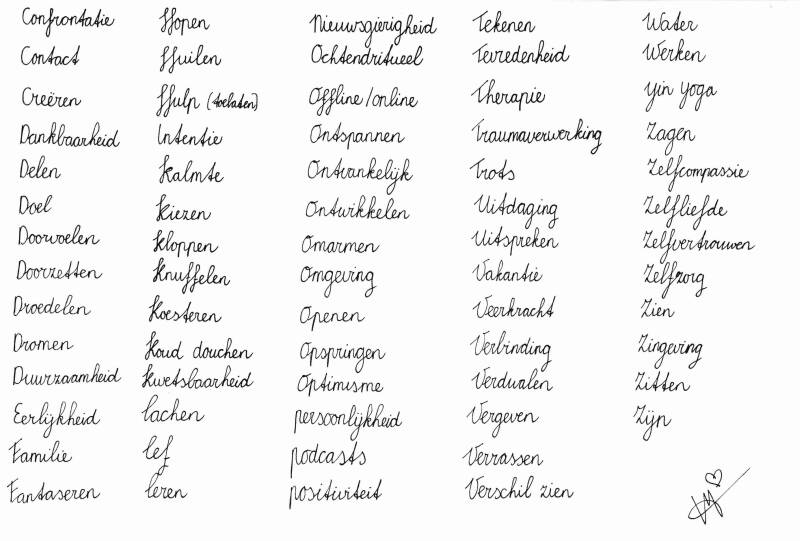 Confrontatie
Contact
Creëren
Dankbaarheid
Delen
Doel
Doorvoelen
Doorzetten
Droedelen
Dromen
Duurzaamheid
Eerlijkheid
Familie
Fantaseren
Hopen
Huilen
Hulp (toelaten)
Intentie
Kalmte
Kiezen
Kloppen
Knuffelen
Koesteren
Koud douchen
Kwetsbaarheid
lachen
lef
leren
Nieuwsgierigheid
Ochtendritueel
Offline/online
Ontspannen
Ontvankelijk
Ontwikkelen
Omarmen
Omgeving
Openen
Opspringen
Optimisme
persoonlijkheid
podcasts
positiviteit
Tekenen
Tevredenheid
Therapie
Traumaverwerking
Trots
Uitdaging
Uitspreken
Vakantie
Veerkracht
Verbinding
Verdwalen
Vergeven
Verrassen
Verschil zien
Water
Werken
Yin Yoga
Zagen
Zelfcompassie
Zelfliefde
Zelfvertrouwen
Zelfzorg
Zien
Zingeving
Zitten
Zijn